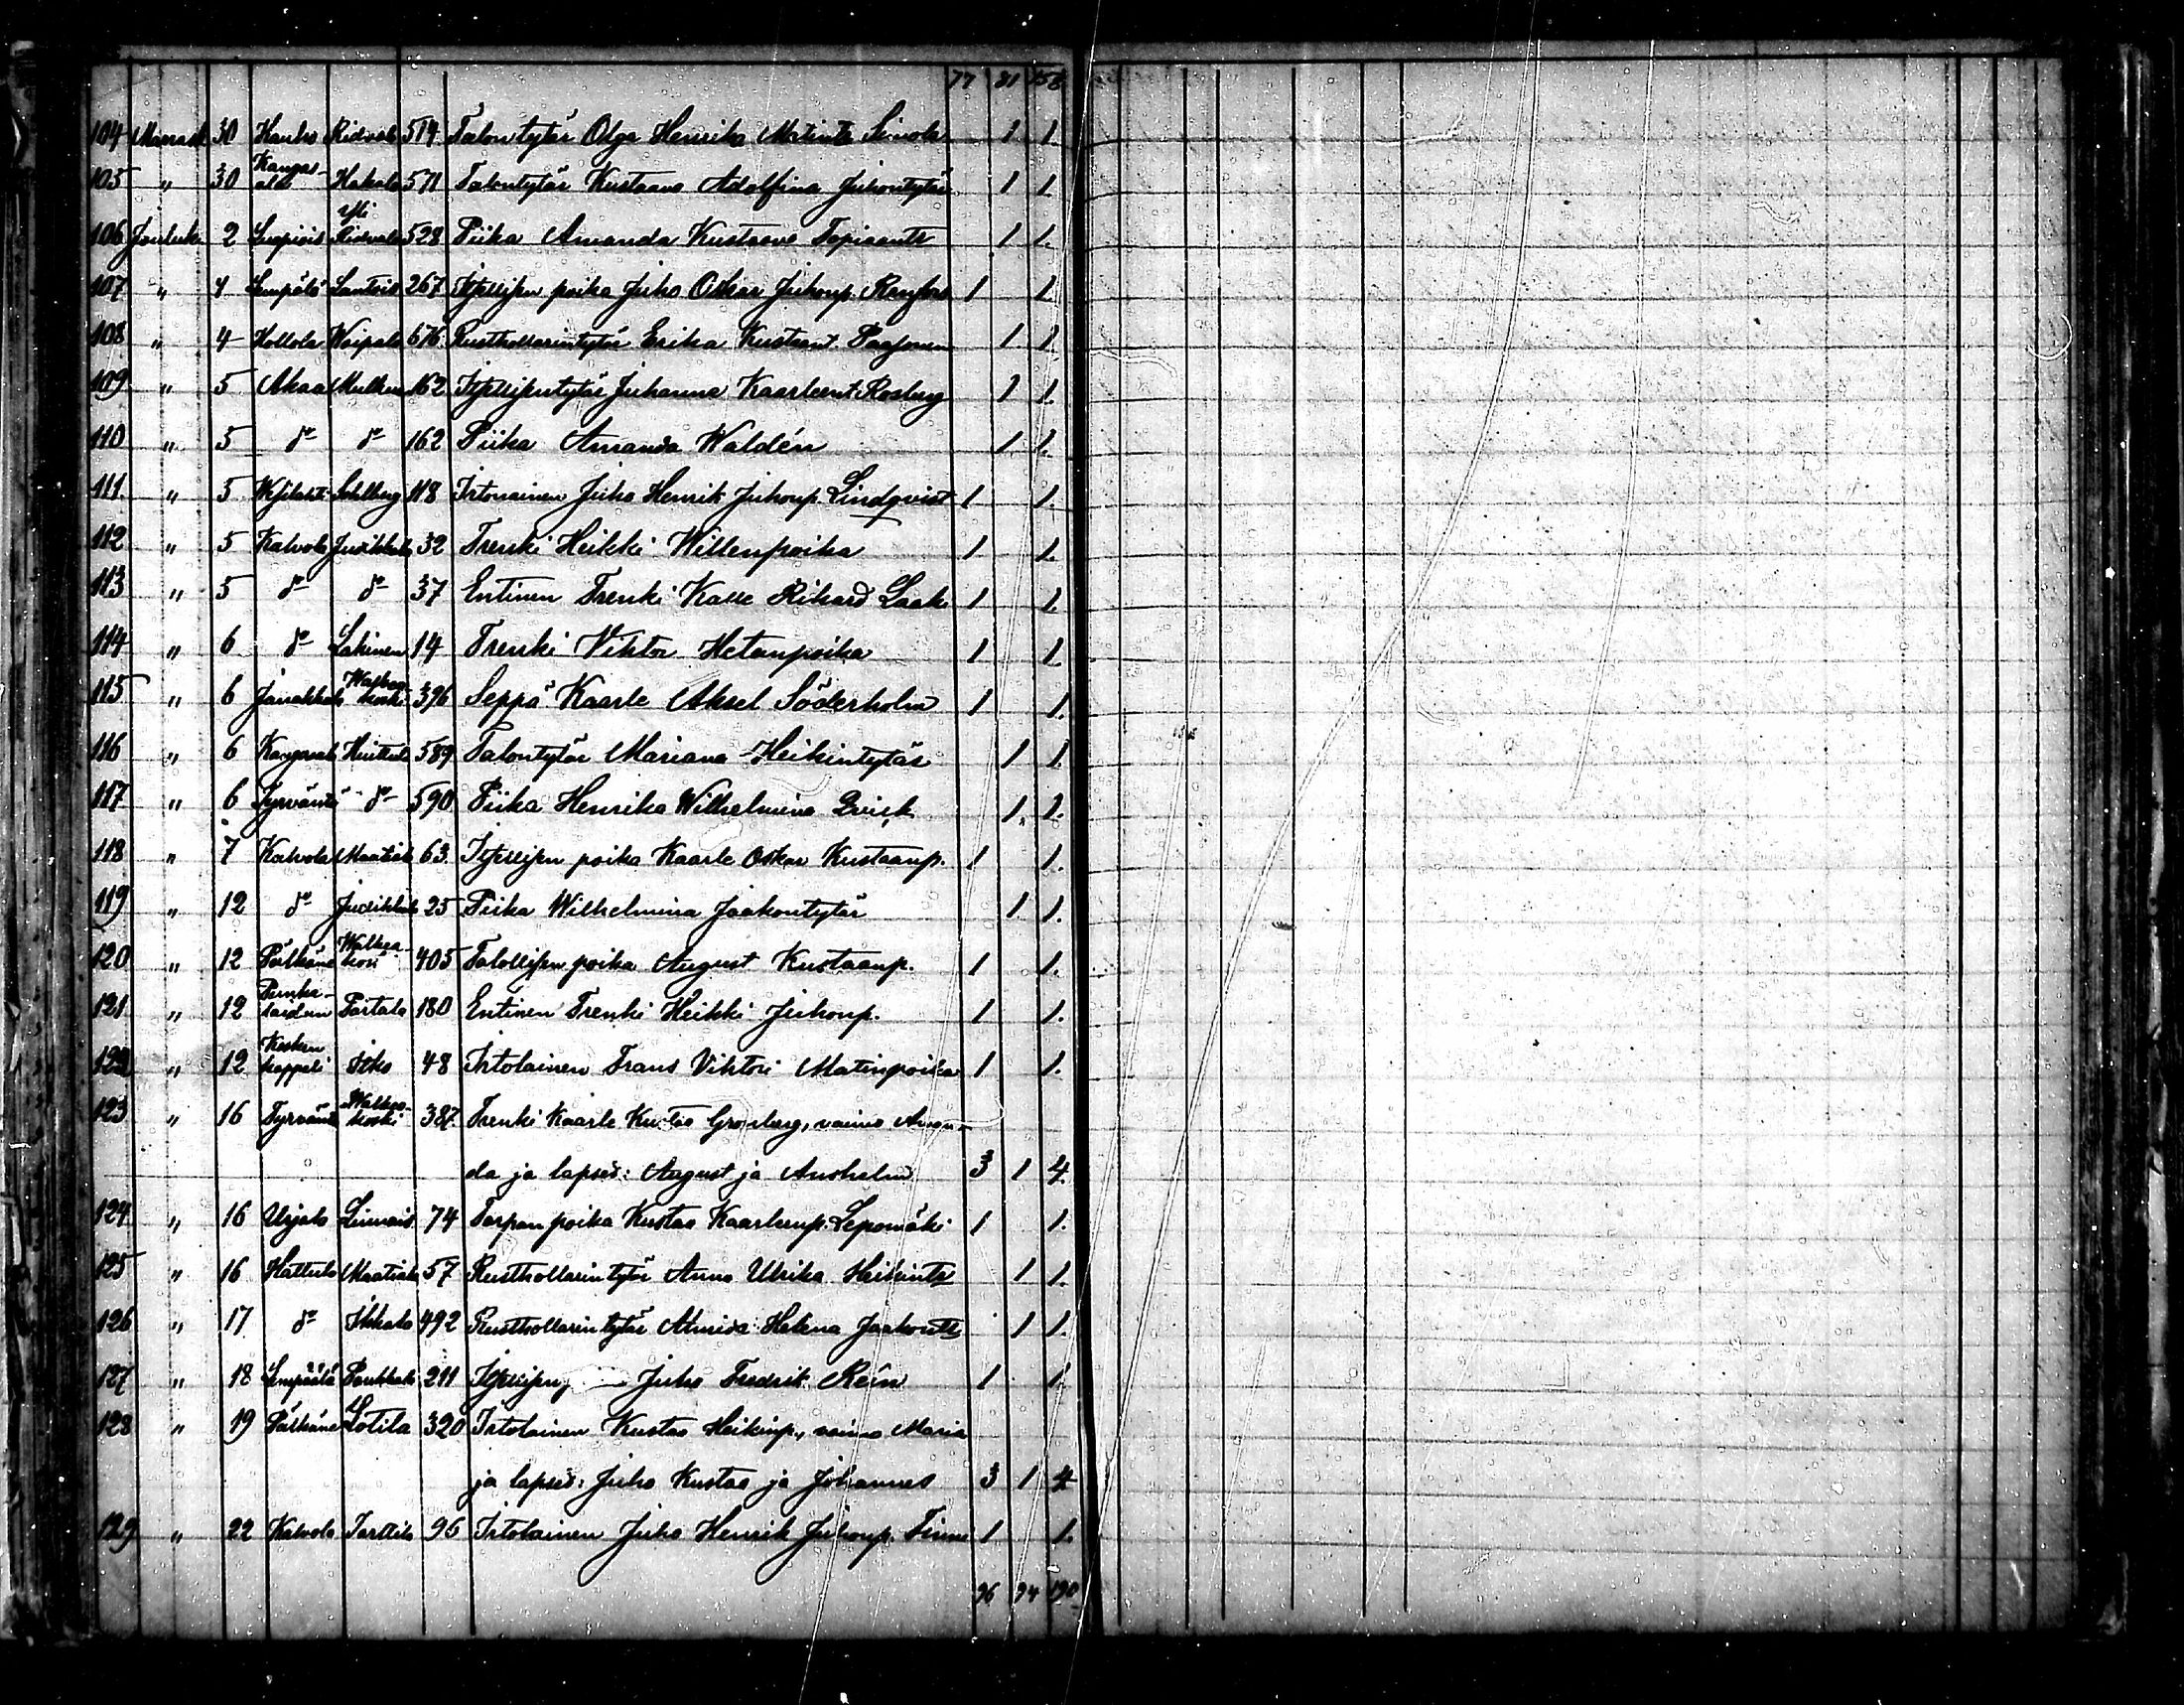 77 81 158
104 Marrask 30 Hauho Ridvala 514 Talontytär Olga Henrika Matintr Seinola 1 1.
105 " 30 Kangasala Hakala 571 Talontytär Kustaava Adolfina Juhontytär 1 1
106 Jouluk 2 Luopiois Yli Ridvala 528 Piika Amanda Kustaava Topiaantr 1 1.
107 " 4 Lempälä Lontois 267 Itsellisen poika Juho Oskar Juhonp. 1 1
108 " 4 Hollola Woipala 676 Rusthollarintytär Erika Kustaant. Paajonen 1 1
109 " 5 Akaa 162 Itsellisentytär Juhanna Kaarleent. Rosberg 1 1.
110 " 5 do do 162 Piika Amanda Waldén 1 1.
111. " 5 Wesilaht Sohlberg 118 Irtonainen Juho Henrik Juhonp. Lindqvist 1 1.
112 " 5 Kalvola Jutikkala 32 Trenki Heikki Willenpoika 1 1.
113 " 5 do do 37 Entinen Trenki Kalle Rikard Laak 1 1.
114 " 6 do Lahinen 14 Trenki Viktor Hetanpoika 1 1.
115 " 6 Janakkala Walkeakoski 396 Seppä Kaarle Aksel Söderholm 1 1.
116 " 6 Kangasala Huittula 589 Talontytär Mariana Heikintytär 1 1.
117 " 6 Tyrväntö do 590 Piika Henrika Wilhelmina Qvick 1. 1.
118 " 7 Kalvola Maatiala 63. Itsellisen poika Kaarle Oskar Kustaanp. 1 1.
119 " 12 do Jutikkala 25 Piika Wilhelmina Jaakontytär 1. 1.
120 " 12 Pälkäne Walkeakoski 405 Talollisen poika August Kustaanp. 1 1.
121. " 12 Partala 180 Entinen Trenki Heikki Juhonp. 1 1.
122 " 12 kappeli Itko 48 Irtolainen Frans Viktori Matinpoika 1 1.
123 " 16 Tyrväntö Walkeakoski 387 Trenki Kaarle Kustaa Grönberg, vaimo Aman-
da ja lapset: August ja Anshelm 3 1 4.
124. " 16 Urjala Linnais 74 Torpan poika Kustaa Kaarleenp. Lepomäki 1 1.
125 " 16 Hattula Maatiala 57 Rusthollarintytär Anna Ulrika Heikintr 1 1.
126 " 17 do Ikkala 492 Rusthollarintytär Almida Helena Jaakontr 1 1.
127 " 18 Lempäälä 211 Itsellisen Juho Fredrik Rén 1 1
128 " 19 Pälkäne Lotila 320 Irtolainen Kustaa Heikinp., vaimo Maria
ja lapset: Juho Kustaa ja Johannes 3 1 4
129 " 22 Kalvola Tarttila 96 Irtolainen Juho Henrik Juhonp. Finne 1 1.
96 94 190